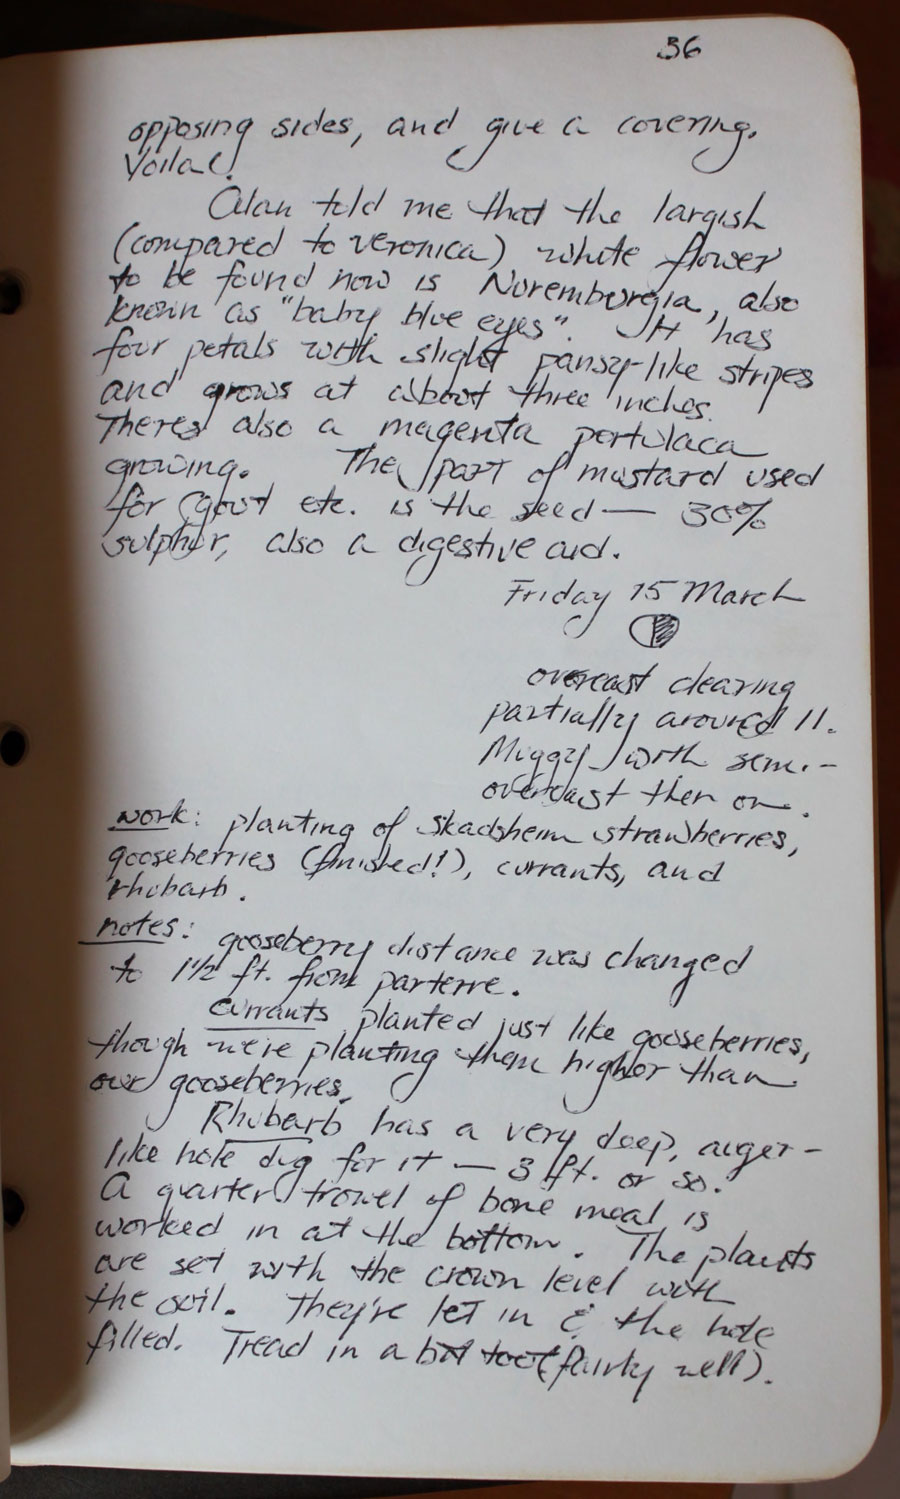 36
opposing sides, and give a covering.
Voila!
Alan told me that the largish
(compared to veronica) white flower
to be found now is Noremburgia, also
known as "baby blue eyes". It has
four petals with slight pansy-like stripes
and grows at about three inches.
Theres also a magenta portulaca
growing. The part of mustard used
for gout etc. is the seed — 30%
sulphur, also a digestive aid.
Friday 15 March
overcast clearing
partially around 11.
Muggy with semi-
overcast then on.
work: planting of skadsheim strawberries,
gooseberries (finished!), currants, and
rhubarb.
notes: gooseberry distance was changed
to 1 1/2 ft. from parterre.
Currants planted just like gooseberries,
though we're planting them higher than
our gooseberries.
Rhubarb has a very deep, auger-
like hole dug for it — 3 ft. or so.
A quarter trowel of bone meal is
worked in at the bottom. The plants
are set with the crown level with
the soil. They're let in & the hole
filled. Tread in a bit (fairly well).